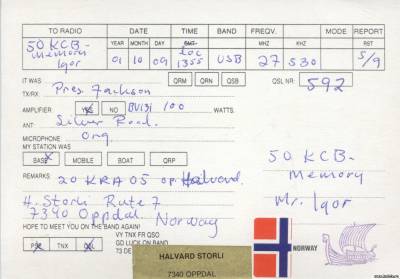 TO RADIO DATE TIME BAND FREQV. MODE REPORT
YEAR MONTH DAY GMT MHZ KHZ RST
50 KCB- Memory Igor 01 10 09 loc 1355 USB 27 530 5/9
IT WAS QRM QRN QSB QSL NR: 592
TX/RX: Pres. Jackson
AMPLIFIER: YES NO BV131 100 WATTS.
ANT: Silver Rod.
MICROPHONE Org.
MY STATION WAS
BASE MOBILE BOAT QRP
REMARKS: 20 KRA 05 op. Halvard.
H. Storli Rute 7
7340 Oppdal. Norway
50 KCB-
Memory
Mr. Igor
HOPE TO MEET YOU ON THE BAND AGAIN!
VY TNX FR QSO
PSE TNX QSL GD LUCK ON BAND
73 DE
HALVARD STORLI
7340 OPPDAL
NORWAY